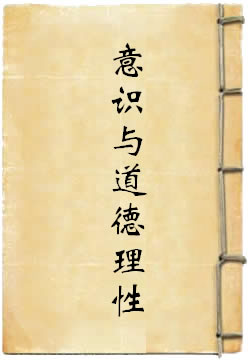 意识与道德理性